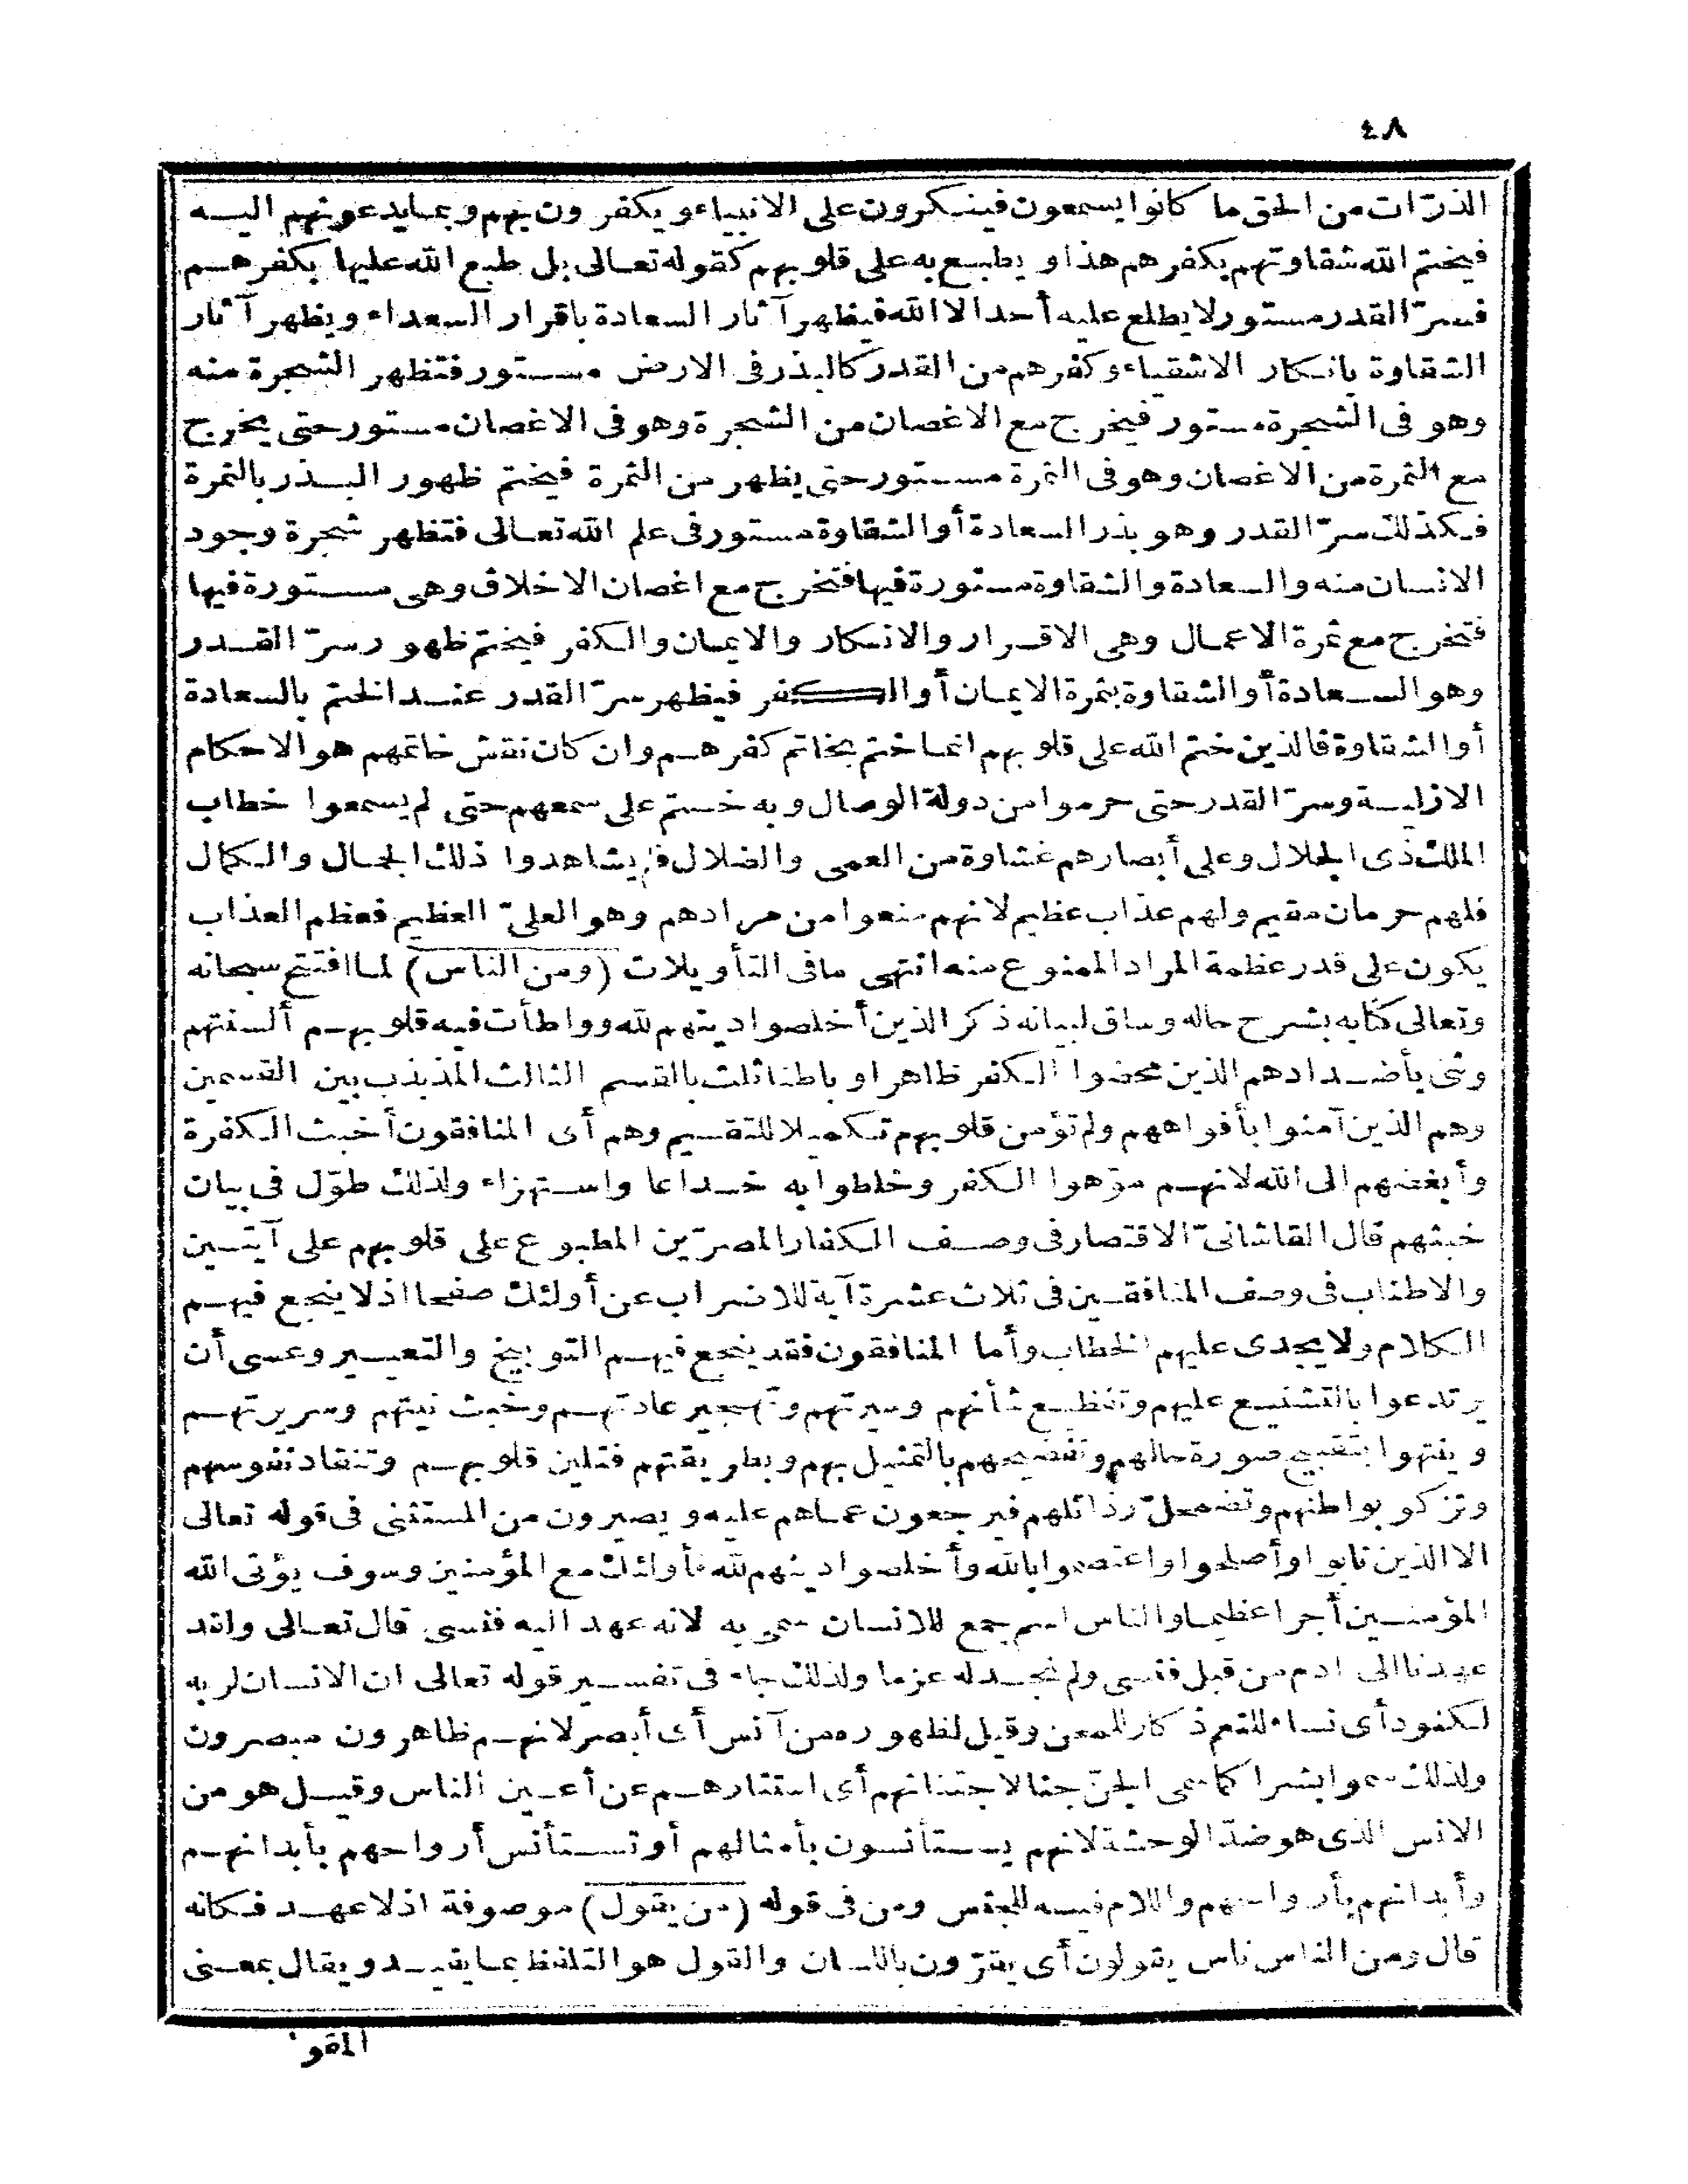 ٤٨
الذرّات من الحق ما كانوا يسمعون فينكرون على الانبياء ويكفرون بهم وبما يدعونهم اليه
فيختم الله شقاوتهم بكفرهم هذا ويطبع به على قلوبهم كقوله تعالى بل طبع الله عليها بكفرهم
فسرّ القدر مستور لا يطلع عليه أحد الا الله فيظهر آثار السعادة باقرار السعداء ويظهر آثار
الشقاوة بانكار الاشقياء وكفرهم من القدر كالبذر فى الارض مستور فتظهر الشجرة منه
وهو فى الشجرة مستور فيخرج مع الاغصان من الشجرة وهو فى الاغصان مستور حتى يخرج
مع الثمرة من الاغصان وهو فى الثمرة مستور حتى يظهر من الثمرة فيختم ظهور البذر بالثمرة
فكذلك سرّ القدر وهو بذر السعادة أو الشقاوة مستور فى علم الله تعالى فتظهر شجرة وجود
الانسان منه والسعادة والشقاوة مستورة فيها فتخرج مع اغصان الاخلاق وهى مستورة فيها
فتخرج مع ثمرة الاعمال وهى الاقرار والانكار والايمان والكفر فيختم ظهور سرّ القدر
وهو السعادة أو الشقاوة بثمرة الايمان أو الكفر فيظهر سرّ القدر عند الختم بالسعادة
أو الشقاوة فالذين ختم الله على قلوبهم انما ختم بخاتم كفرهم وان كان نقش خاتمهم هو الاحكام
الازلية وسرّ القدر حتى حرموا من دولة الوصال وبه ختم على سمعهم حتى لم يسمعوا خطاب
الملك ذى الجلال وعلى أبصارهم غشاوة من العمى والضلال فلم يشاهدوا ذلك الجمال والكمال
فلهم حرمان مقيم ولهم عذاب عظيم لانهم منعوا من مرادهم وهو العلىّ العظيم فعظم العذاب
يكون على قدر عظمة المراد الممنوع منه انتهى ما فى التأويلات (ومن الناس) لما افتتح سبحانه
وتعالى كتابه بشرح حاله وساق لبيانه ذكر الذين أخلصوا دينهم لله وواطأت فيه قلوبهم ألسنتهم
وثنى بأضدادهم الذين محضوا الكفر ظاهرا وباطنا ثلث بالقسم الثالث المذبذب بين القسمين
وهم الذين آمنوا بأفواههم ولم تؤمن قلوبهم تكميلا للتقسيم وهم أى المنافقون أخبث الكفرة
وأبغضهم الى الله لانهم موّهوا الكفر وخلطوا به خداعا واستهزاء ولذلك طوّل فى بيان
خبثهم قال القاشانىّ الاقتصار فى وصف الكفار المصرّين المطبوع على قلوبهم على آيتين
والاطناب فى وصف المنافقين فى ثلاث عشرة آية للاضراب عن أولئك صفحا اذ لا ينجع فيهم
الكلام ولا يجدى عليهم الخطاب وأما المنافقون فقد ينجع فيهم التوبيخ والتعيير وعسى أن
يرتدعوا بالتشنيع عليهم وتفظيع شأنهم وسيرتهم وتهجير عادتهم وخبث نيتهم وسريرتهم
وينتهوا بتقبيح صورة حالهم وتفضيحهم بالتمثيل بهم وبطريقتهم فتلين قلوبهم وتنقاد نفوسهم
وتزكو بواطنهم وتضمحلّ رذائلهم فيرجعون عما هم عليه ويصيرون من المستثنى فى قوله تعالى
الا الذين تابوا وأصلحوا واعتصموا بالله وأخلصوا دينهم لله فأولئك مع المؤمنين وسوف يؤتى الله
المؤمنين أجرا عظيما والناس اسم جمع للانسان سمى به لانه عهد اليه فنسى قال تعالى ولقد
عهدنا الى ادم من قبل فنسى ولم نجد له عزما ولذلك جاء فى تفسير قوله تعالى ان الانسان لربه
لكنود أى نساء للنعم ذكار للمحن وقيل لظهوره من آنس أى أبصر لانهم ظاهرون مبصرون
ولذلك سموا بشرا كما سمى الجنّ جنا لاجتنانهم أى استتارهم عن أعين الناس وقيل هو من
الانس الذى هو ضدّ الوحشة لانهم يستأنسون بأمثالهم أو تستأنس أرواحهم بأبدانهم
وأبدانهم بأرواحهم واللام فيه للجنس ومن فى قوله (من يقول) موصوفة اذ لا عهد فكانه
قال ومن الناس ناس يقولون أى يقرّون باللسان والقول هو التلفظ بما يفيد ويقال بمعنى
المقو